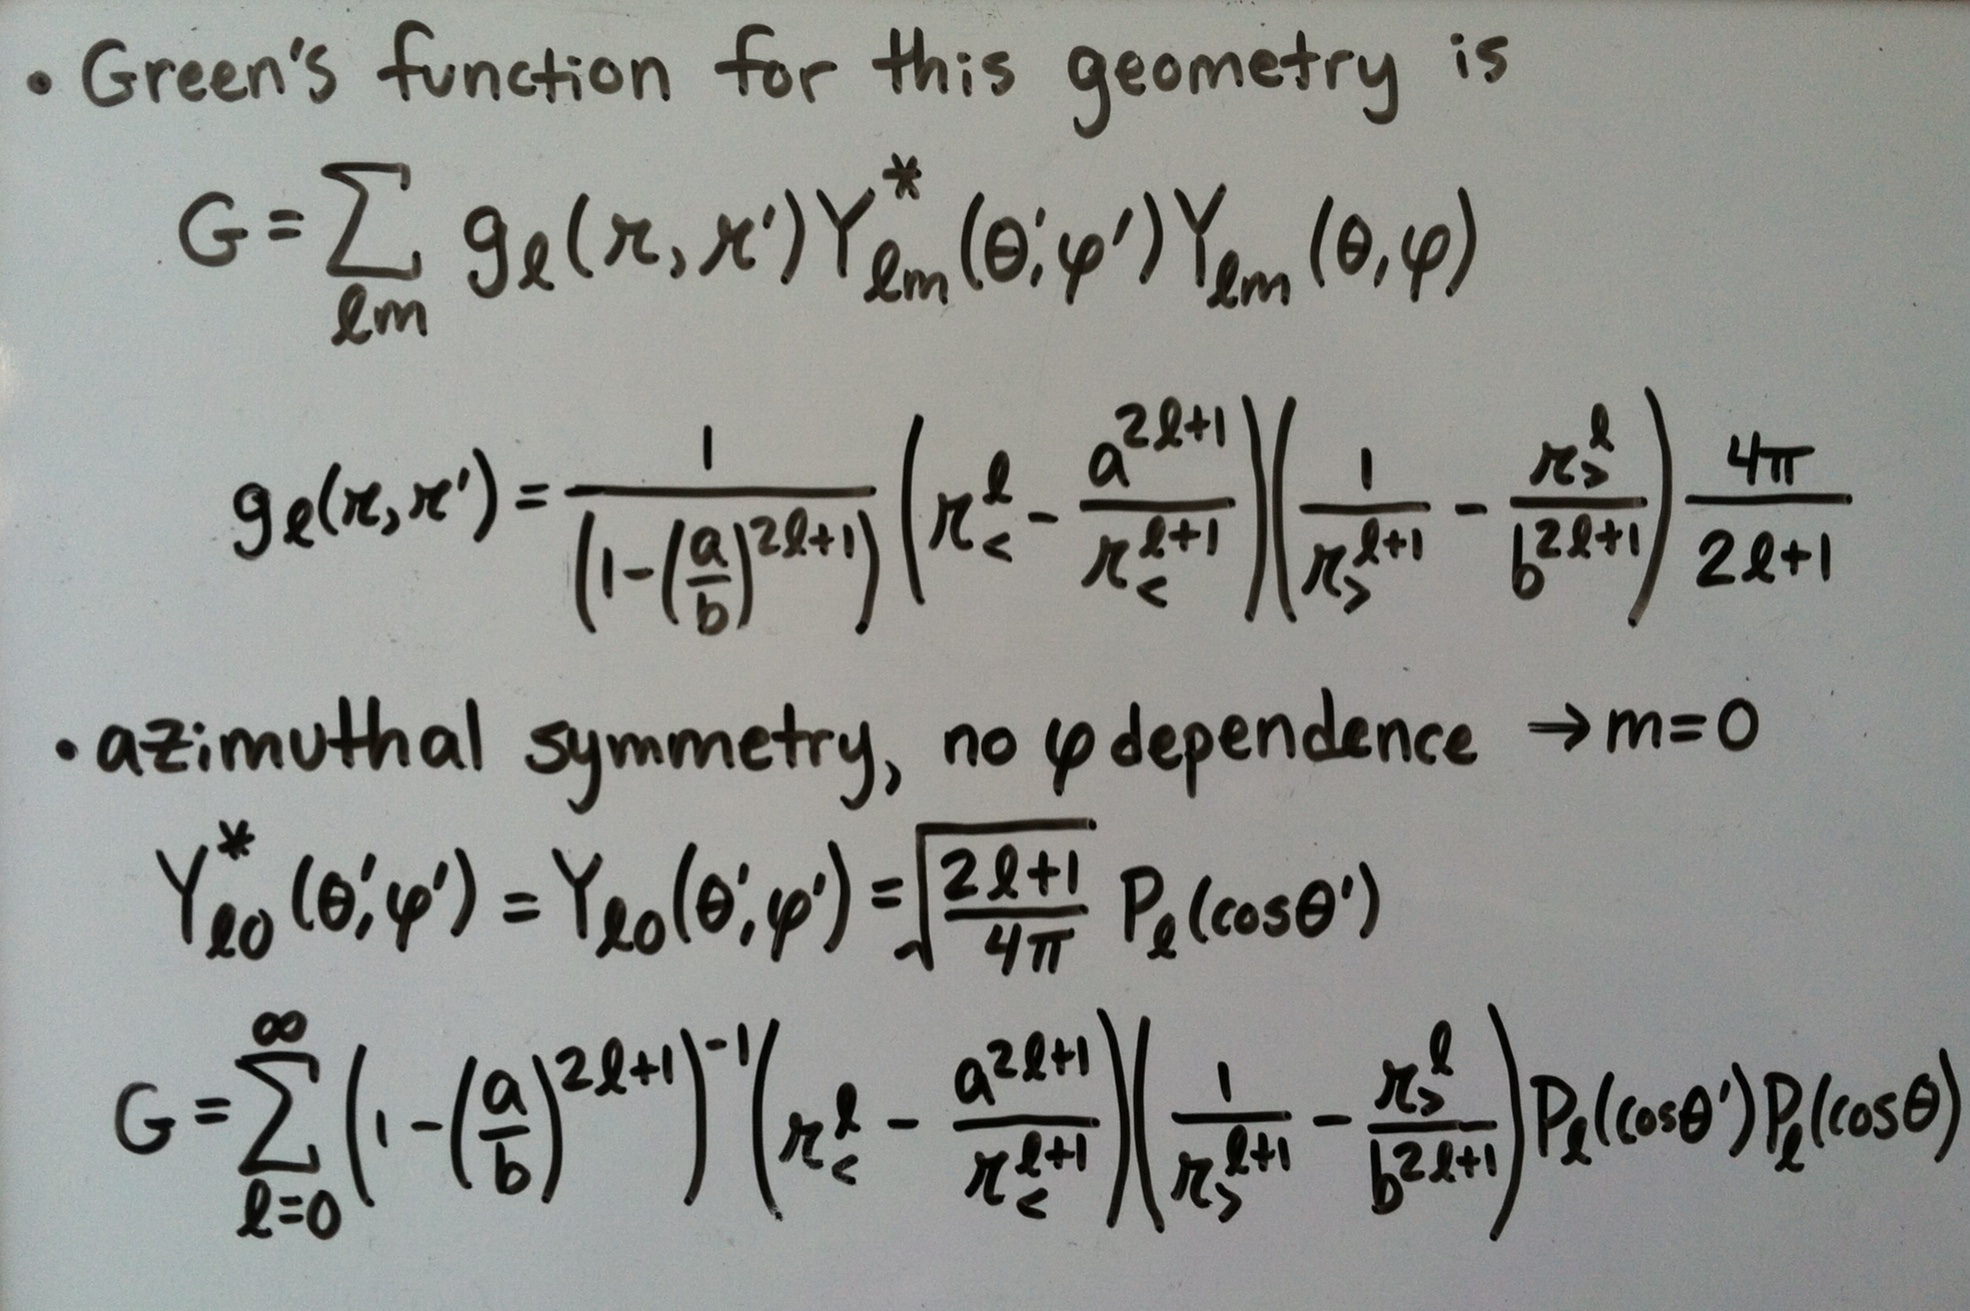 • Green's function for this geometry is
G = ∑_{ℓm} g_ℓ(r, r') Y*_{ℓm}(θ', φ') Y_{ℓm}(θ, φ)
g_ℓ(r, r') = \frac{1}{(1-(\frac{a}{b})^{2ℓ+1})} (r_<^ℓ - \frac{a^{2ℓ+1}}{r_<^{ℓ+1}}) (\frac{1}{r_>^{ℓ+1}} - \frac{r_>^ℓ}{b^{2ℓ+1}}) \frac{4π}{2ℓ+1}
• azimuthal symmetry, no φ dependence → m=0
Y*_{ℓ0}(θ', φ') = Y_{ℓ0}(θ', φ') = \sqrt{\frac{2ℓ+1}{4π}} P_ℓ(cosθ')
G = ∑_{ℓ=0}^{∞} (1-(\frac{a}{b})^{2ℓ+1})^{-1} (r_<^ℓ - \frac{a^{2ℓ+1}}{r_<^{ℓ+1}}) (\frac{1}{r_>^{ℓ+1}} - \frac{r_>^ℓ}{b^{2ℓ+1}}) P_ℓ(cosθ') P_ℓ(cosθ)